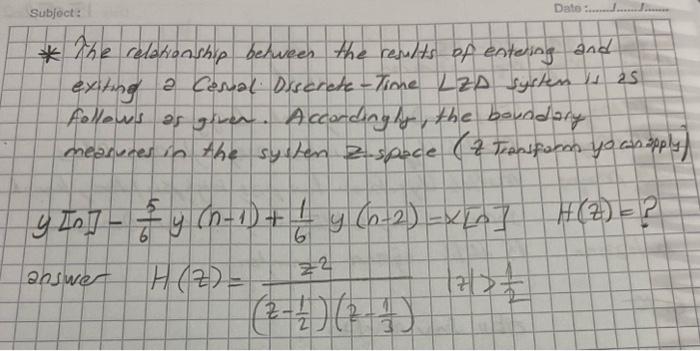 Subject:
Date:....../....../......
* The relationship between the results of entering and
exiting a Casual Discrete-Time LZD system is as
follows as given. Accordingly, the boundary
measures in the system z space (z Transform yo can apply)
y[n] - 5/6 y(n-1) + 1/6 y(n-2) = x[n] H(z) = ?
answer H(z) = z² / (z - 1/2)(z - 1/3) |z| > 1/2